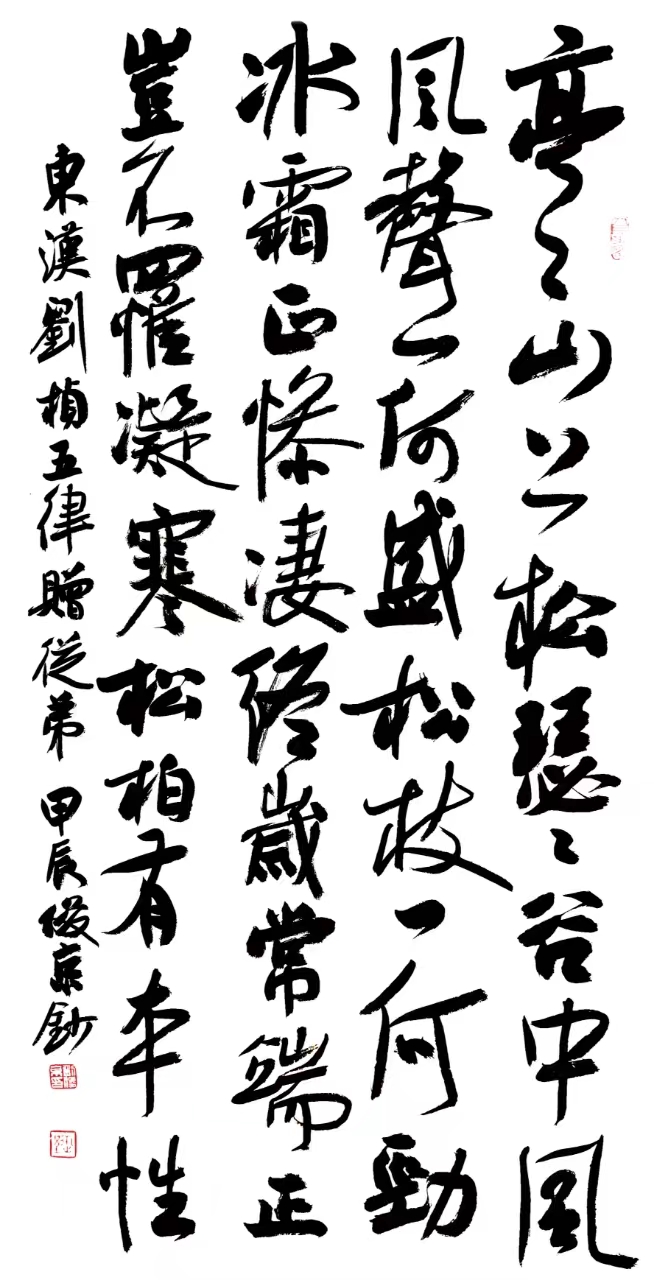 亭〻山上松瑟〻谷中風
風聲一何盛松枝一何勁
冰霜正慘淒終歲常端正
豈不罹凝寒松柏有本性
東漢劉楨五律贈從弟 甲辰俊京鈔